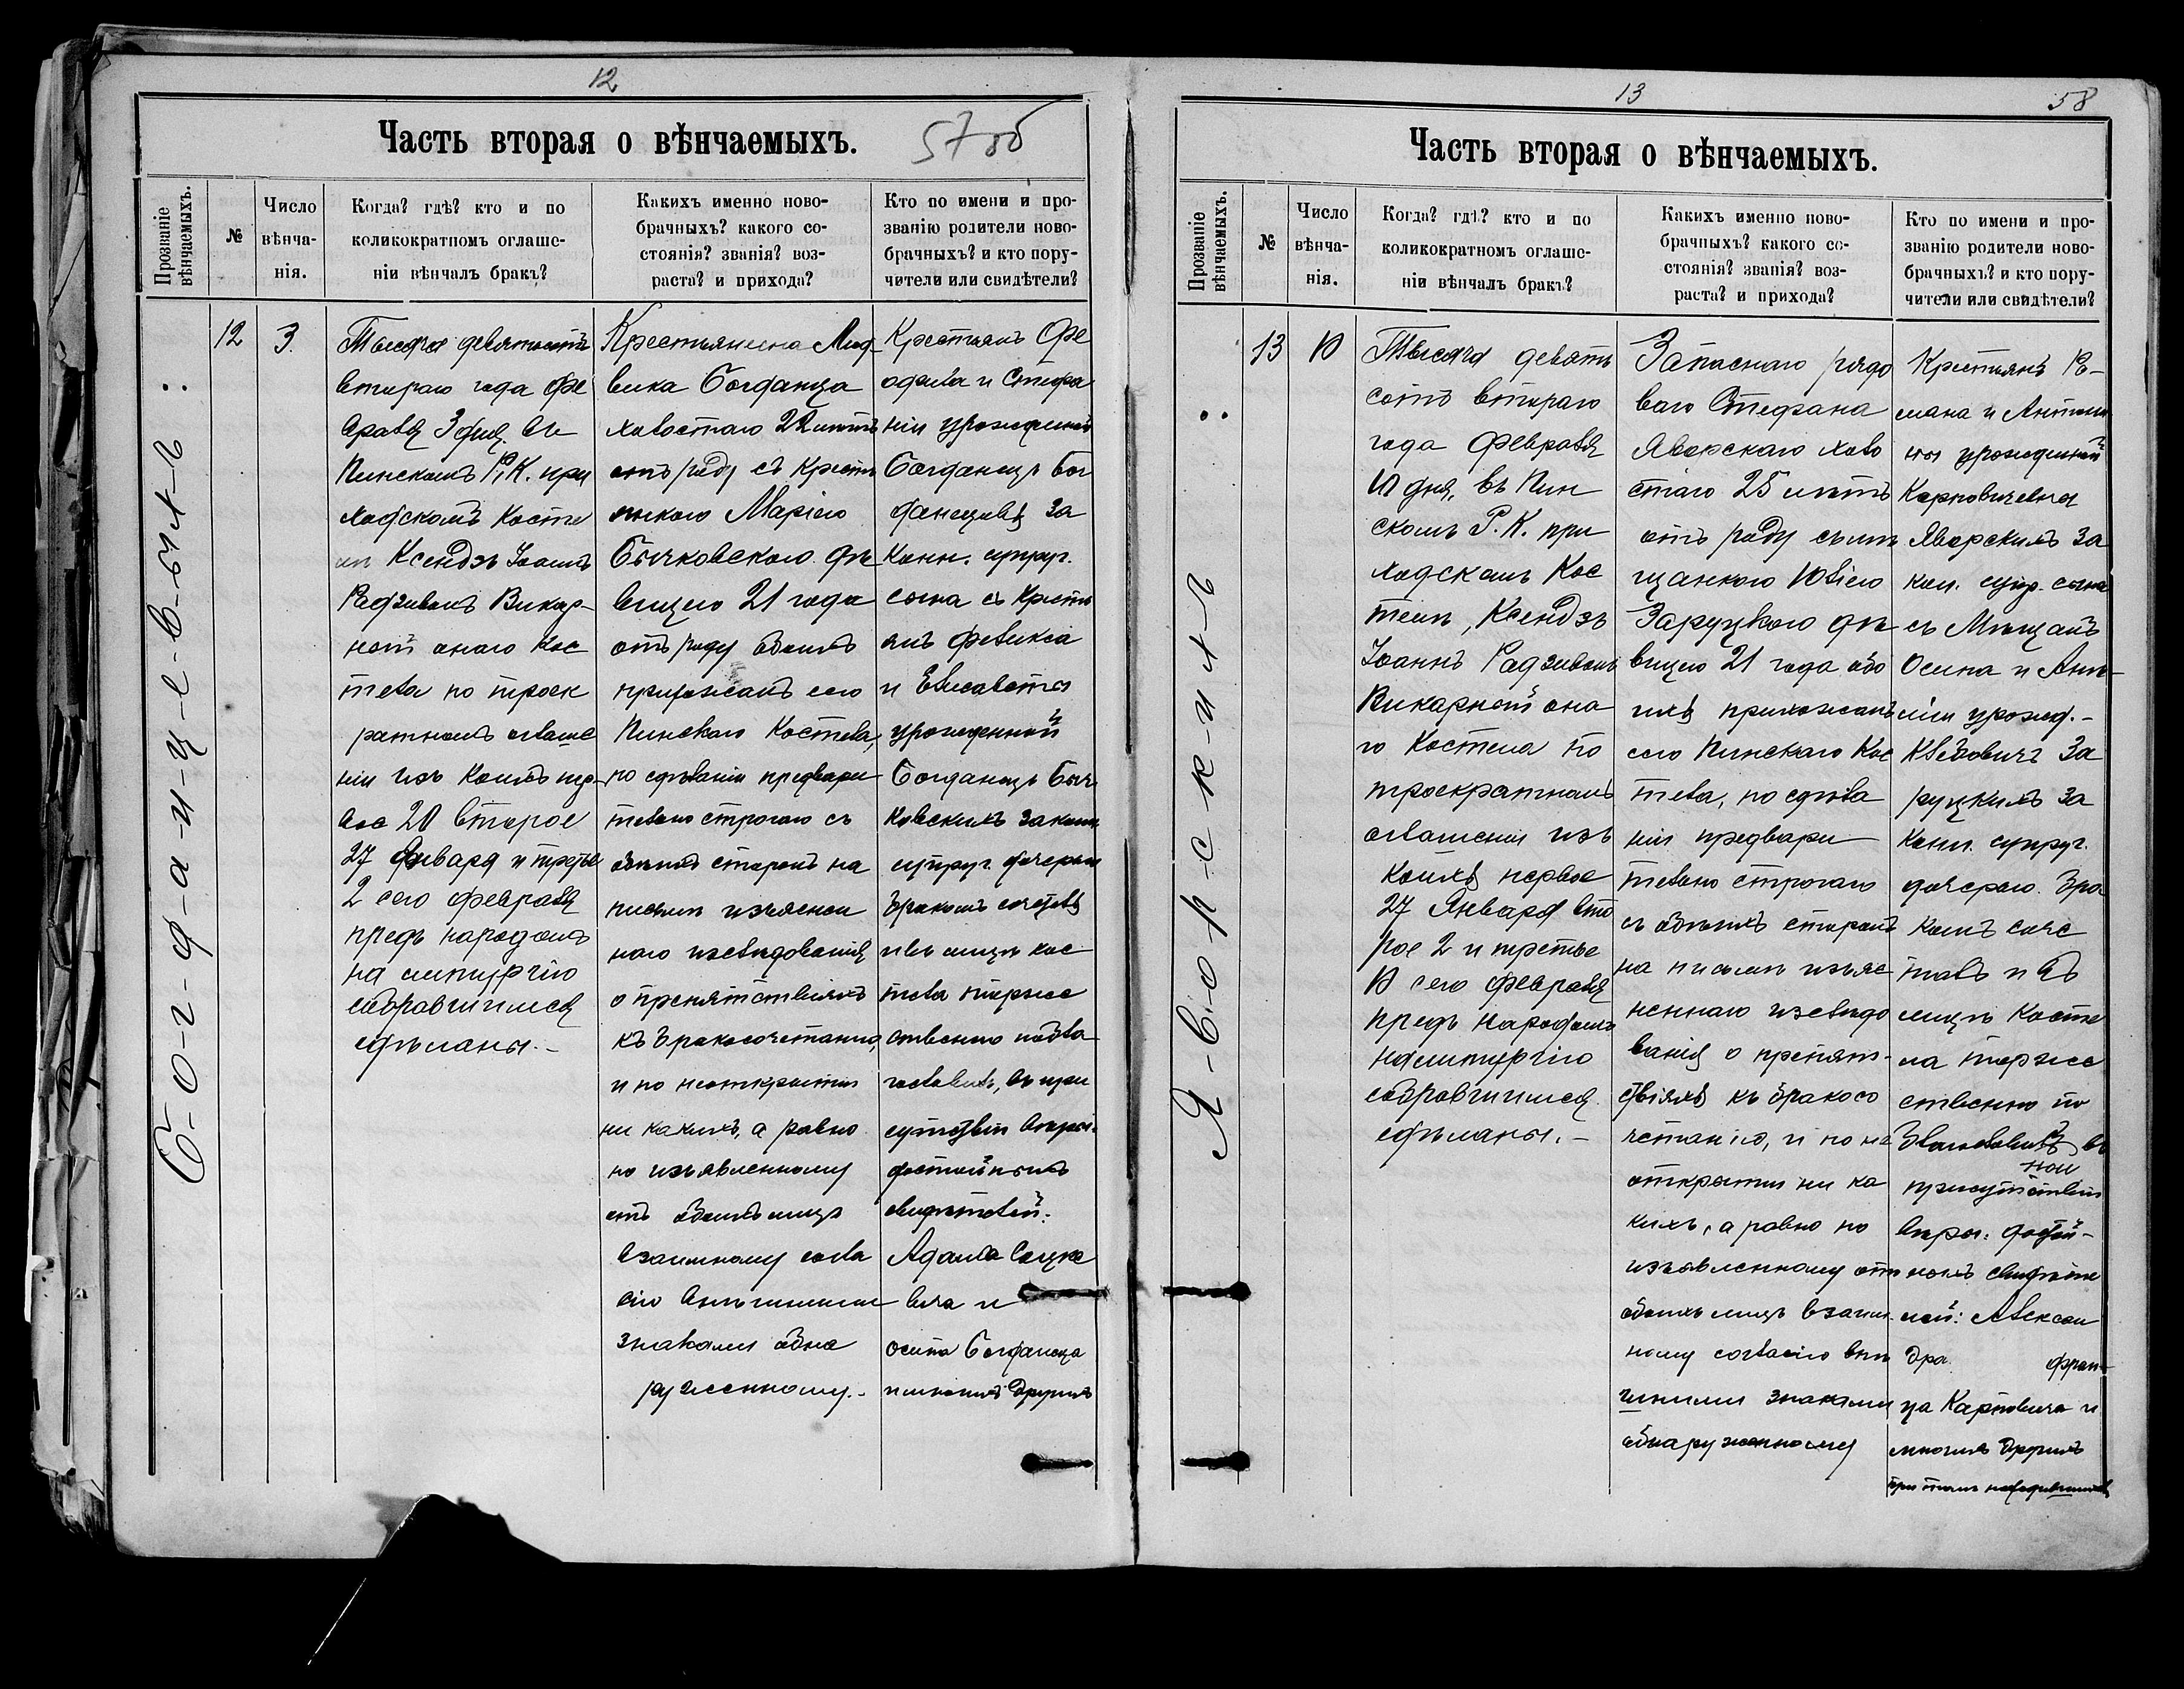 12
Часть вторая о вѣнчаемыхъ.
57 об
Прозваніе вѣнчаемыхъ.
№
Число вѣнча-нія.
Когда? гдѣ? кто и по
коликократномъ оглаше-
ніи вѣнчалъ бракъ?
Какихъ именно ново-
брачныхъ? какого со-
стоянія? званія? воз-
раста? и прихода?
Кто по имени и про-
званію родители ново-
брачныхъ? и кто пору-
чители или свидѣтели?
Б-о-г-д-а-н-ц-е-в-ы-х-ъ
12
3.
Тысяча девятьсотъ
втораго года Фе
враля 3 дня, въ
Пинскомъ Р. К. при
ходскомъ Косте
лѣ Ксендзъ Іоаннъ
Радзивилъ Викар-
ный онаго Кос
тела по троек
ратномъ оглаше
ніи изъ коихъ пер-
вое 20 второе
27 Января и третье
2 сего февраля
предъ народомъ
на литургію
собравшимся
сдѣланы.-
Крестьянина Люд-
вика Богданца
холостаго 22 лѣтъ
отъ роду съ Кресть
янкою Маріею
Бычковскою дѣ
вицею 21 года
отъ роду обоихъ
прихожанъ сего
Пинскаго Костела,
по сдѣланіи предвари
тельно строгаго съ
обѣихъ сторонъ на
письмѣ изъяснен
наго изслѣдованія
о препятствіяхъ
къ бракосочетанію,
и по неоткрытіи
ни какихъ, а равно
по изъявленному
отъ обоихъ лицъ
взаимному согла
сію внѣшними
знаками обна
руженному.-
Крестьянъ Фе
офила и Стефа
ніи урожденной
Богданецъ Бог
данцевыхъ за
конн. супруг.
сына съ Кресть
янъ Феликса
и Елисаветы
урожденной
Богданецъ Быч
ковскихъ законн.
супруг. дочерью
бракомъ сочеталъ
и въ лицѣ кос
тела торже
ственно побла
гословилъ, въ при
сутствіи вѣры.
достойныхъ
свидѣтелей:
Адама Соцке
вича и
Осипа Богданца
и многихъ другихъ
13
58
Часть вторая о вѣнчаемыхъ.
Прозваніе вѣнчаемыхъ.
№
Число вѣнча-нія.
Когда? гдѣ? кто и по
коликократномъ оглаше-
ніи вѣнчалъ бракъ?
Какихъ именно ново-
брачныхъ? какого со-
стоянія? званія? воз-
раста? и прихода?
Кто по имени и про-
званію родители ново-
брачныхъ? и кто пору-
чители или свидѣтели?
Я-в-о-р-с-к-и-х-ъ
13
10
Тысяча девять
сотъ втораго
года февраля
10 дня, въ Пин
скомъ Р. К. при
ходскомъ Кос
телѣ, Ксендзъ
Іоаннъ Радзивилъ
Викарный она
го Костела по
троекратномъ
оглашеніи изъ
коихъ первое
27 Января вто
рое 2 и третье
10 сего февраля
предъ народомъ
на литургію
собравшимся
сдѣланы.-
Запаснаго рядо
ваго Стефана
Яворскаго холо
стаго 25 лѣтъ
отъ роду съ мѣ
щанкою Юліею
Заруцкою дѣ
вицею 21 года обо
ихъ прихожанъ
сего Пинскаго Кос
тела, по сдѣла
ніи предвари
тельно строгаго
съ обѣихъ сторонъ
на письмѣ изъяс
неннаго изслѣдо
ванія о препят-
ствіяхъ къ бракосо
четанію, и по не
открытіи ни ка
кихъ, а равно по
изъявленному отъ
обоихъ лицъ взаим
ному согласію внѣ
шними знаками
обнаруженному
Крестьянъ Ро-
мана и Антони
ны урожденной
Карповичевна
Яворскихъ за
кон. супр. сына
съ Мѣщанъ
Осипа и Ама-
ліи урожд.-
За
руцкихъ за
конн. супруг.
дочерью бра
комъ соче
талъ и въ
лицѣ Косте
ла торже
ственно по
благословилъ въ
присутствіи
вѣры. достой-
ныхъ свидѣте
лей: Алексан
дра фран-
ца Карповича и
многихъ другихъ
при томъ находившихся